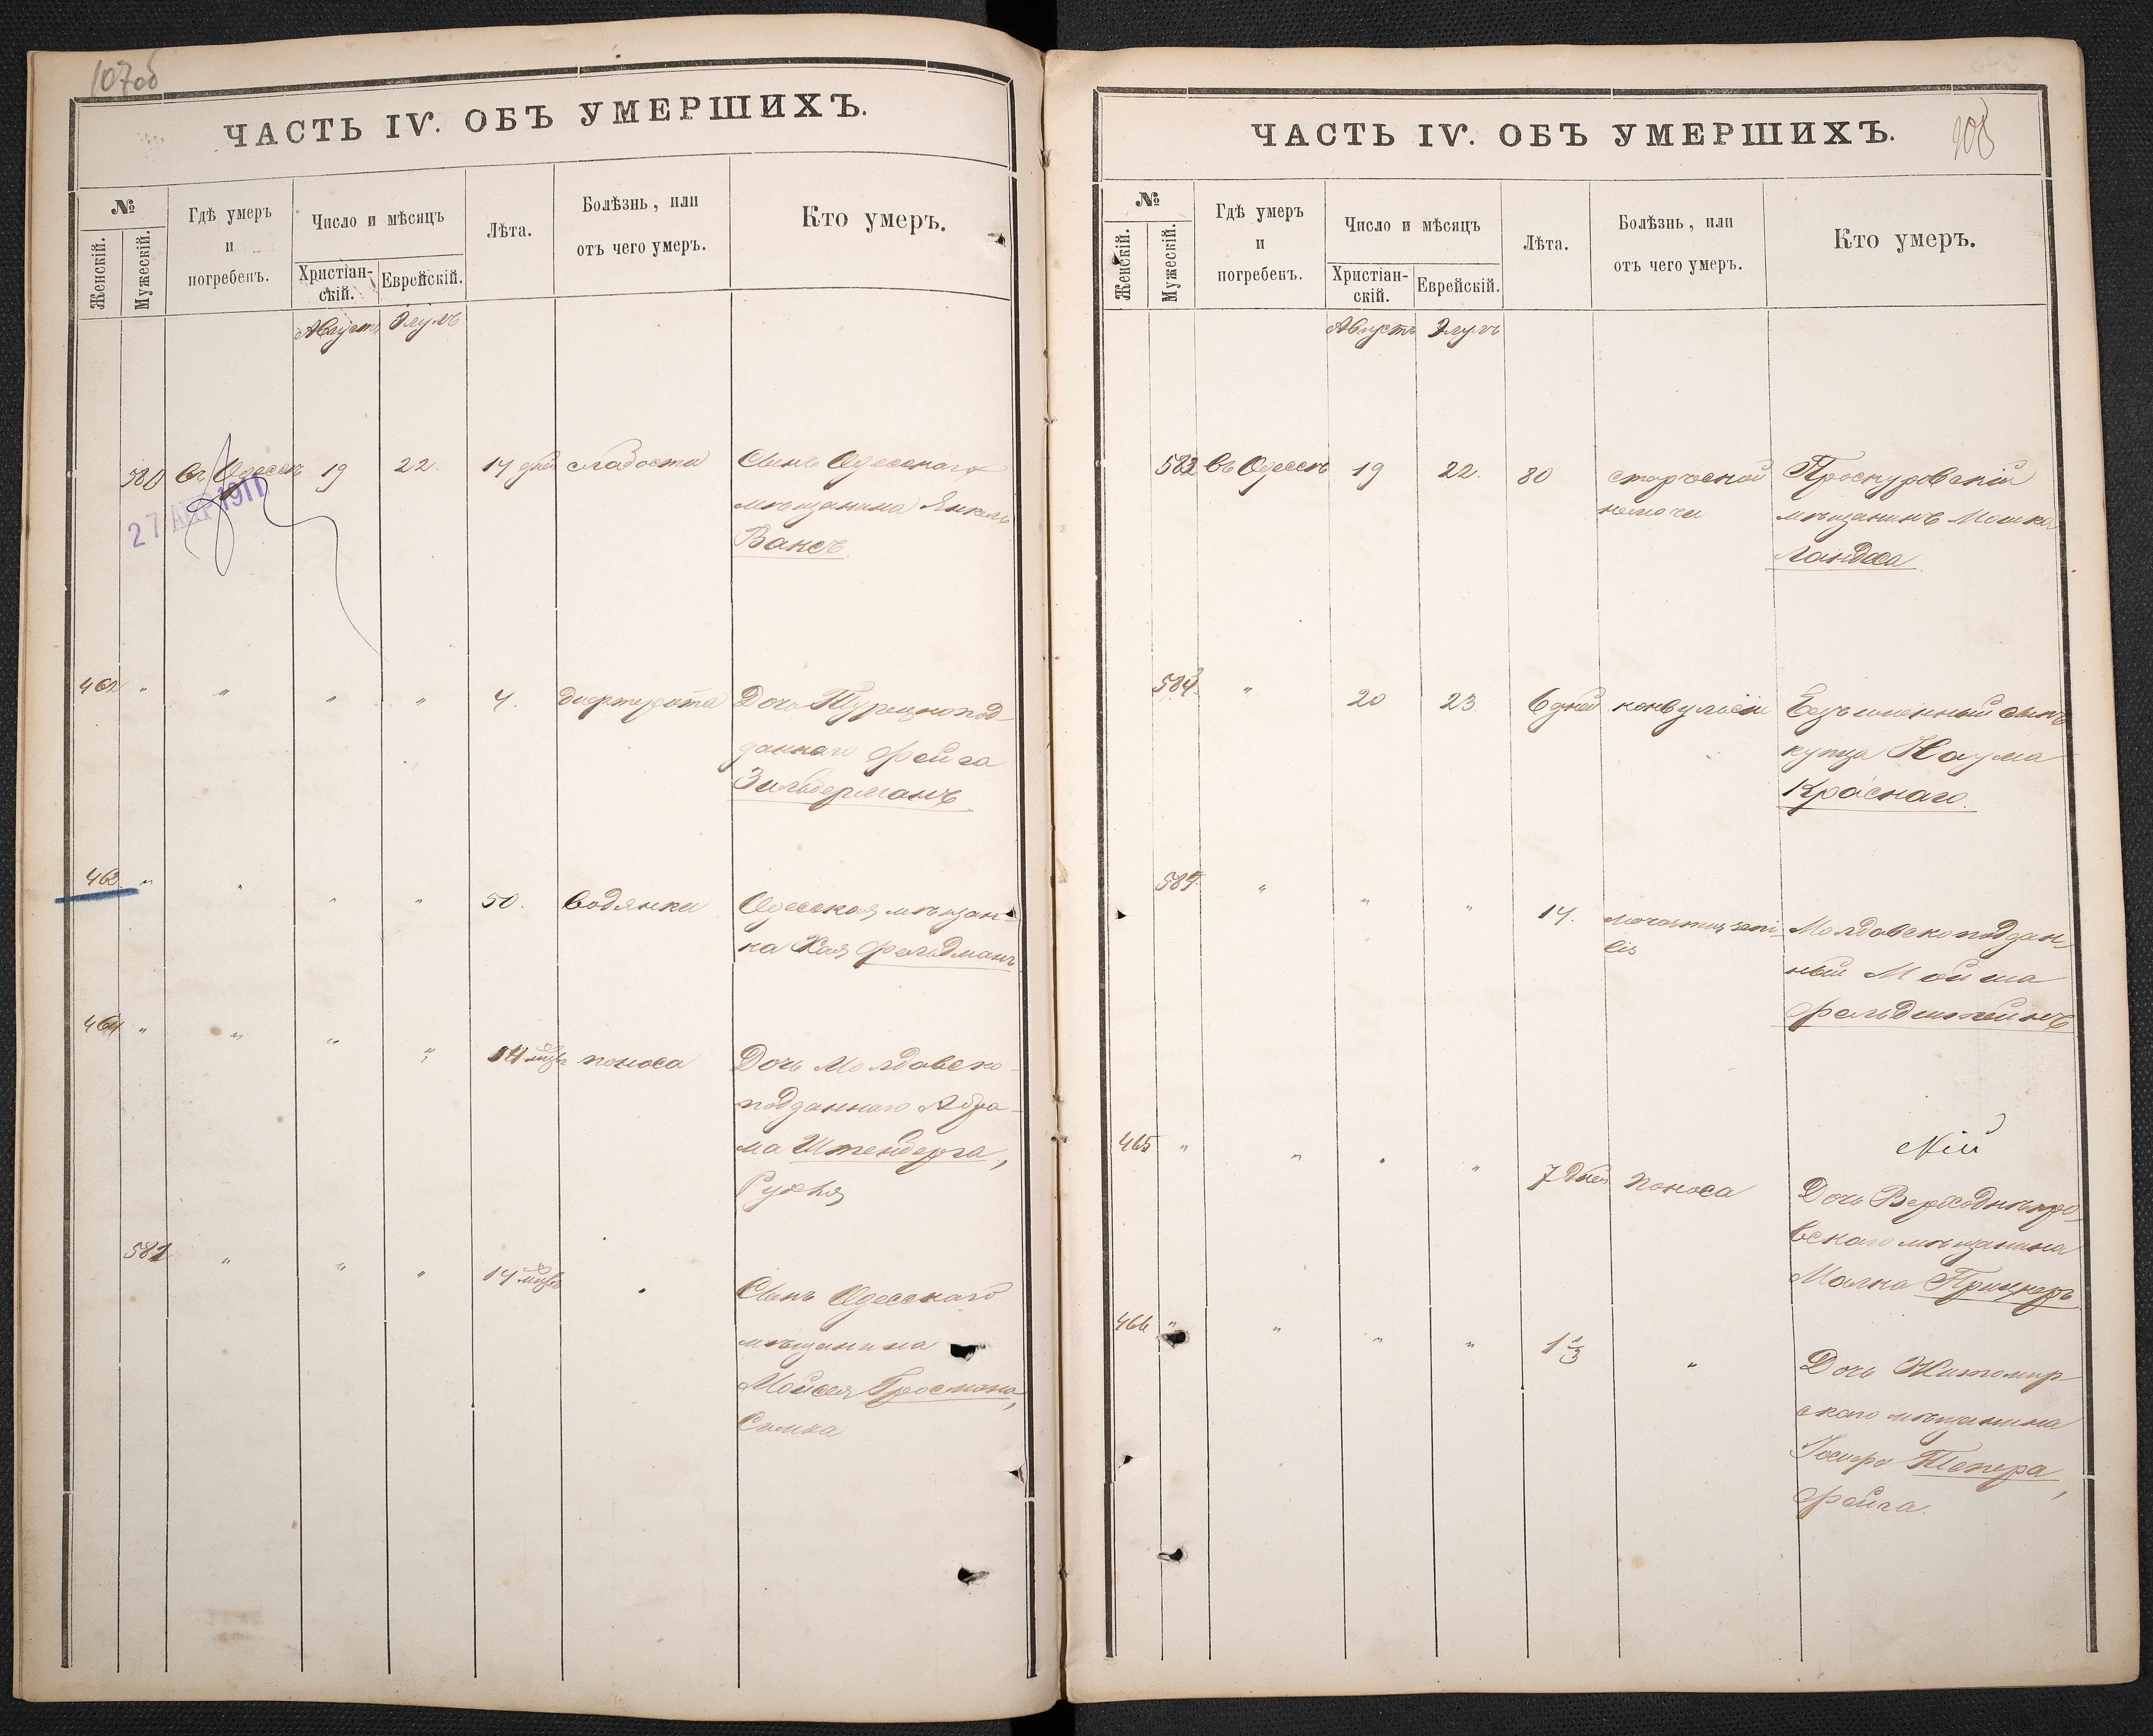 107об
ЧАСТЬ IV. ОБЪ УМЕРШИХЪ.
№
Женскій.
Мужескій.
Гдѣ умеръ
и
погребенъ.
Число и мѣсяцъ
Христіан-
скій.
Еврейскій.
Лѣта.
Болѣзнь, или
отъ чего умеръ.
Кто умеръ.
Августъ Элулъ
580 Въ Одессѣ 19 22. 14 дней слабости Сынъ Одесскаго
мѣщанина Янкель
Ваксъ
27 АПР 1911
462 " " " " 4. дифтерита Дочь Турецкопод-
даннаго Фейга
Зильберманъ
463 " " " " 50. водянки Одесская мѣщан-
ка Хая Фельдманъ
464 " " " " 14 мѣс. поноса Дочь Молдавско-
подданнаго Абра-
ма Штенберга,
Рухля
581 " " " 14 мѣс. " Сынъ Одесскаго
мѣщанина
Мойсея Гросмана,
108
ЧАСТЬ IV. ОБЪ УМЕРШИХЪ.
№
Женскій.
Мужескій.
Гдѣ умеръ
и
погребенъ.
Число и мѣсяцъ
Христіан-
скій.
Еврейскій.
Лѣта.
Болѣзнь, или
отъ чего умеръ.
Кто умеръ.
Августъ Элулъ
582 Въ Одессѣ 19 22. 80 старческой Проскуровскій
немочи мѣщанинъ Мошка
Ландва
" 20 23. 6 дней конвульсіи Безъименный сынъ
купца Наума
Краснаго.
" " " 14. seni- Молдавскоподдан-
lis ный Мойша
Фельдштейнъ
465 " " " " 7 дней поноса Дочь Верходнѣпро-
вскаго мѣщанина
Малка Прицкеръ
466 " " " " 1 1/3 " Дочь Житомир-
скаго мѣщанина
Іосифа Тепера,
Фейга.